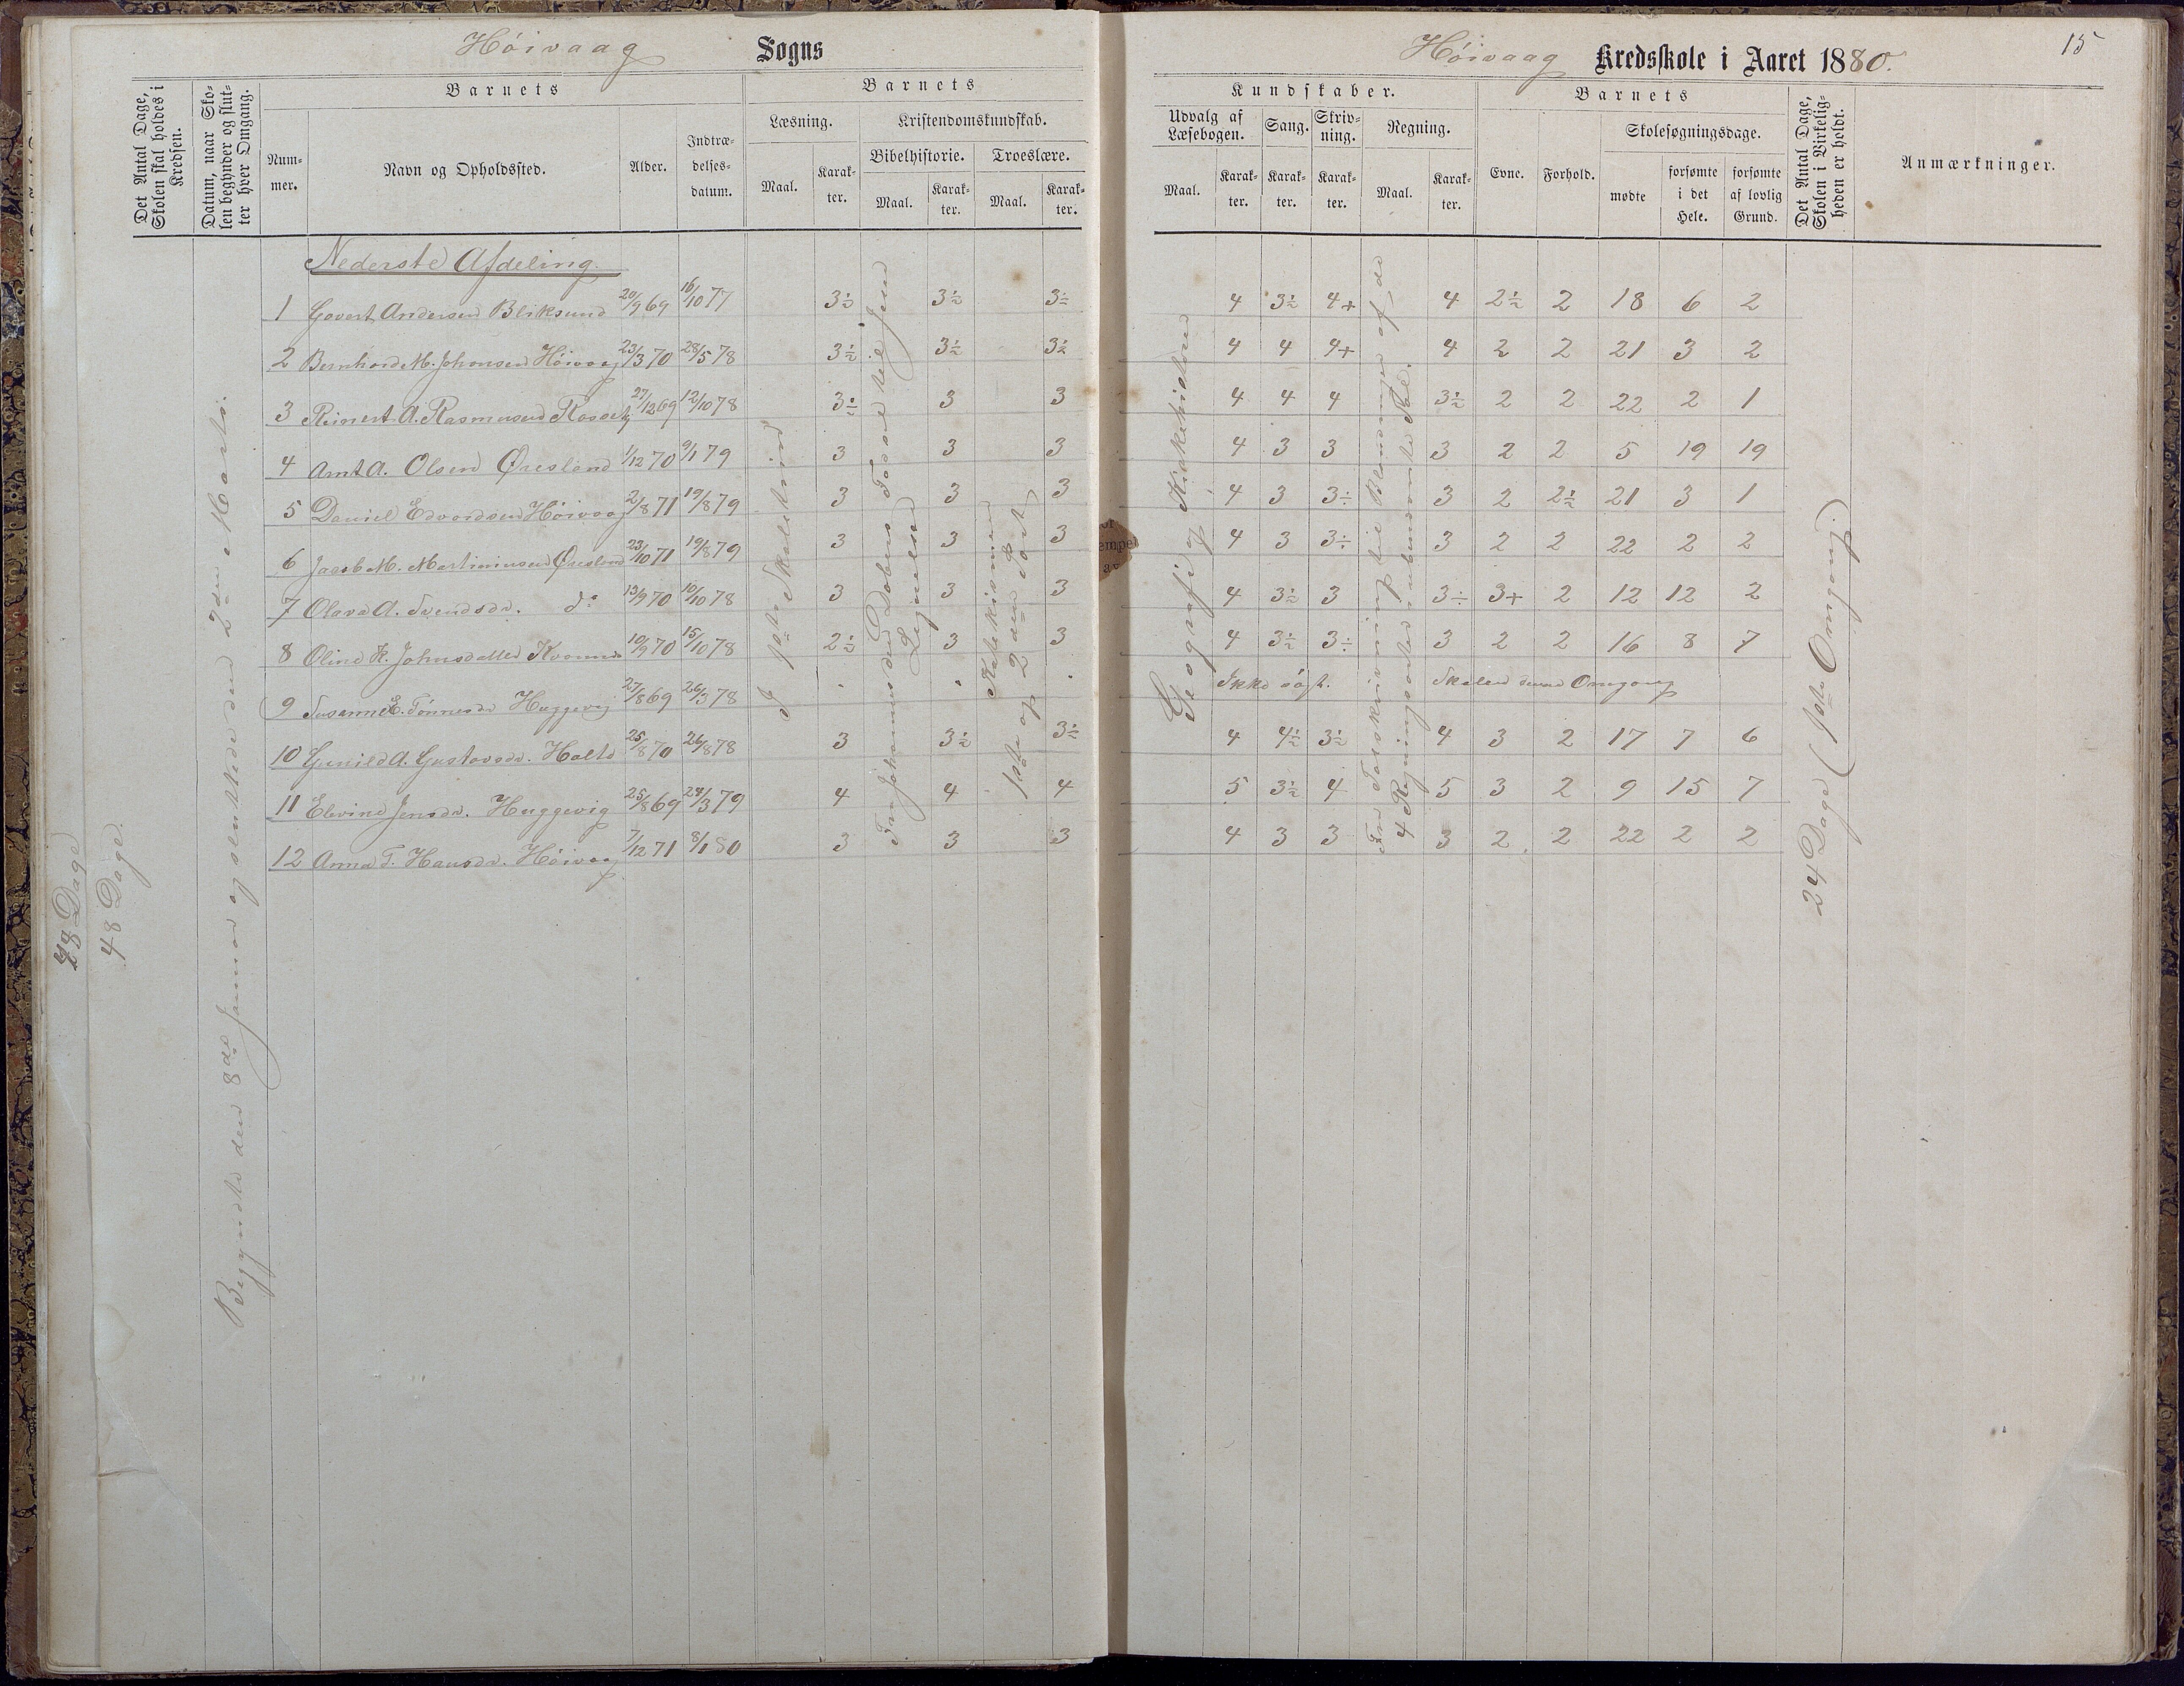 Høivaag Sogns
Det Antal Dage, Skolen skal holdes i Kredsen.
Datum, naar Skolen begynder og slutter hver Omgang.
Barnets
Nummer.
Navn og Opholdssted.
Alder.
Indtrædelsesdatum.
Barnets
Læsning.
Maal.
Karakter.
Kristendomskundskab.
Bibelhistorie.
Maal.
Karakter.
Troeslære.
Maal.
Karakter.
Nederste Afdeling.
1 Govert Andersen Bliksund 20/9 69 16/10 77 3½ 3½ 3½
2 Bernhard M. Johansen Høivaag 23/3 70 28/5 78 3½ 3½ 3½
3 Reinert A. Rasmussen 27/12 69 12/10 78 3½ 3 3
4 Amt A. Olsen Øresland 1/12 70 9/1 79 3 3 3
5 Daniel Edvardsen Høivaag 2/8 71 19/8 79 3 3 3
6 Jacob M. Martiniusen Øresland 23/10 71 19/8 79 3 3 3
7 Olava A. Svendsdr. do 13/9 70 10/10 78 3 3 3
8 Oline K. Johnsdatter 10/9 70 15/10 78 2½ 3 3
9 Susanne E. Tønnesdr Huggevig 27/8 69 26/3 78
10 Gunild A. Gustavsdr. Holte 25/8 70 26/8 78 3 3½ 3½
11 Elevine Jensdr. Huggevig 25/8 69 24/3 79 4 4 4
12 Anna T. Hansdr. Høivaag 7/12 71 8/1 80 3 3 3
48 Dage
48 Dage.
Begyndte den 8de Januar og sluttede den 2den Marts.
I 1ste Skoletrin
Fra Johannes den Døbers til Jesu Lignelser
Katekismen 1ste og 2den Part
Høivaag Kredsskole i Aaret 1880.
15
Kundskaber.
Udvalg af Læsebogen.
Maal.
Karakter.
Sang.
Karakter.
Skrivning.
Karakter.
Regning.
Maal.
Karakter.
Barnets
Evne.
Forhold.
Skolesøgningsdage.
mødte
forsømte i det Hele.
forsømte af lovlig Grund.
Det Antal Dage, Skolen i Virkeligheden er holdt.
Anmærkninger.
4 3½ 4+ 4 2½ 2 18 6 2
4 4 4+ 4 2 2 21 3 2
4 4 4 3½ 2 2 22 2 1
4 3 3 3 2 2 5 19 19
4 3 3÷ 3 2 2½ 21 3 1
4 3 3÷ 3 2 2 22 2 2
4 3½ 3 3÷ 3+ 2 12 12 2
4 3½ 3÷ 3 2 2 16 8 7
Ikke søgt. Skolen denne Omgang
4 4½ 3½ 4 3 2 17 7 6
5 3½ 4 5 3 2 9 15 7
4 3 3 3 2 2 22 2 2
Geografi og Kirkehistorie
4 Regningsarter i ubenævnte Tal.
24 Dage (1ste Omgang.)